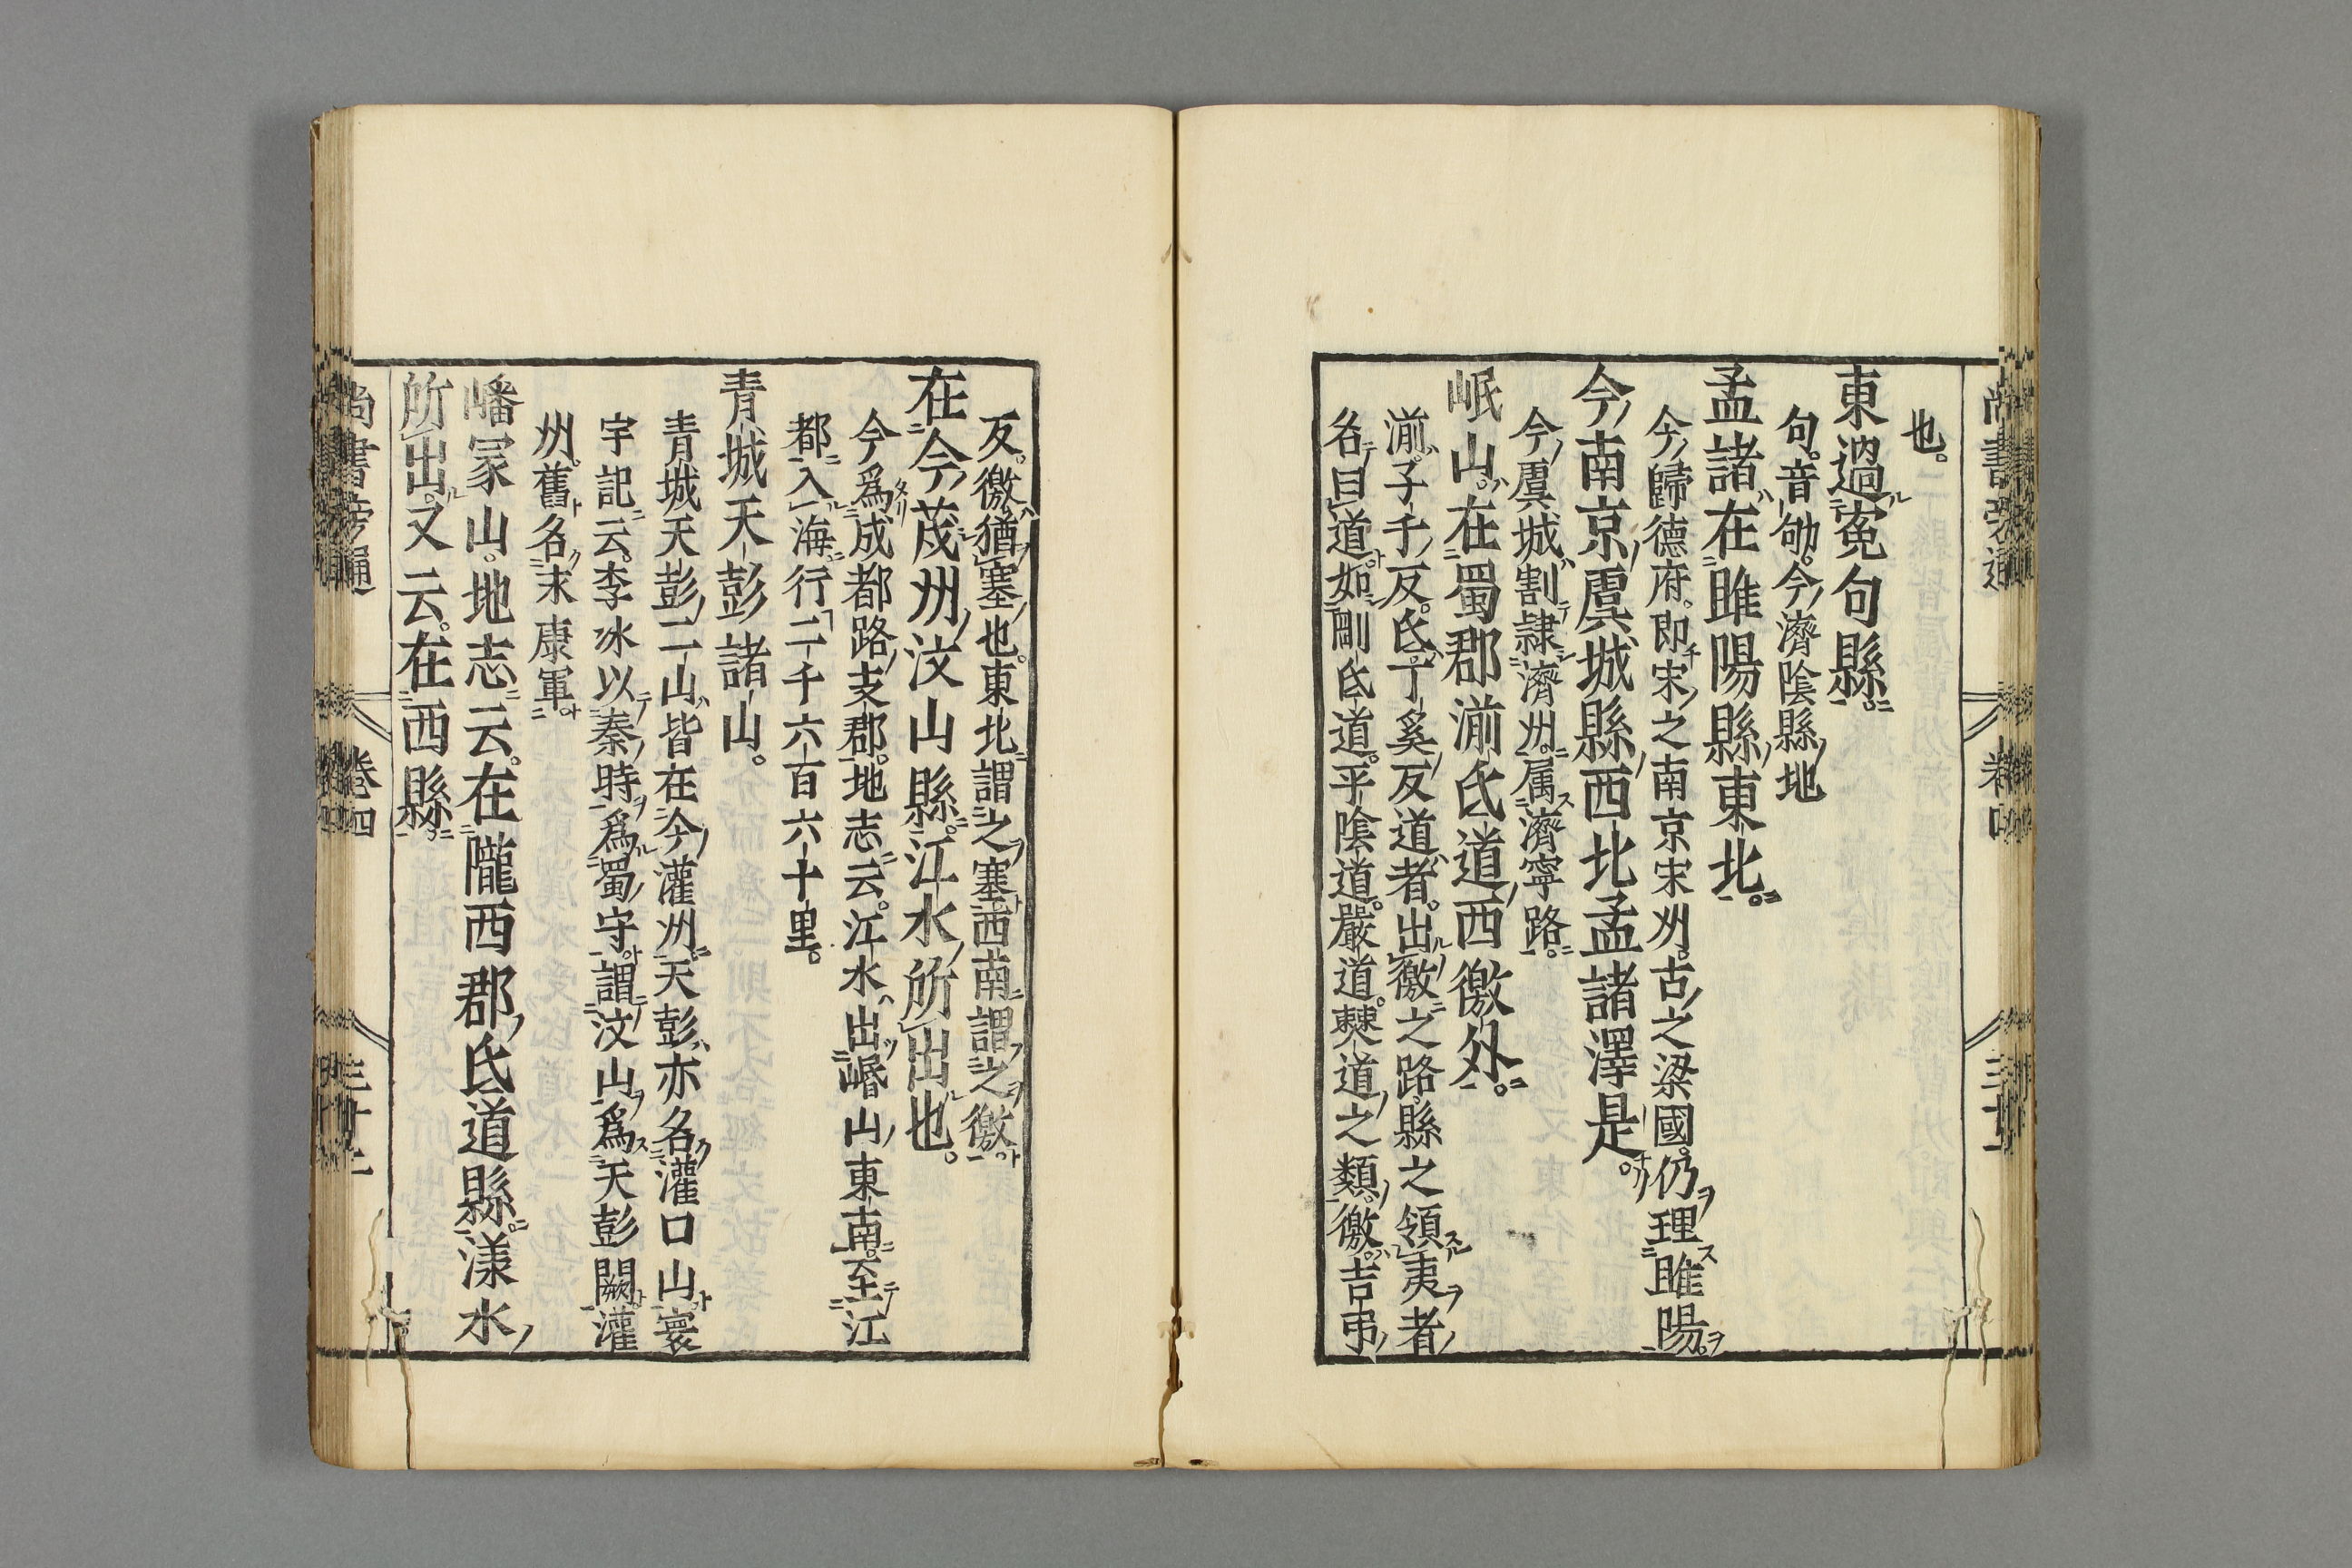 也。
東過寃句縣。
句。音劬。今濟陰縣地
孟諸在雎陽縣東北。
今歸德府。即宋之南京宋州。古之梁國。仍理雎陽。
今南京虞城縣西北孟諸澤是。
今虞城割隷濟州。属濟寧路。
岷山。在蜀郡湔氐道西徼外。
湔。子千反。氐。丁奚反道者。出徼之路。縣之領夷者
名曰道。如剛氐道。平陰道。嚴道。僰道之類。徼。吉弔
反。徼猶塞也。東北謂之塞西南謂之徼
在今茂州汶山縣。江水所出也。
今爲成都路支郡。地志云。江水出崏山東南。至江
都入海行二千六百六十里。
青城天彭諸山。
青城天彭二山皆在今灌州天彭亦名灌口山寰
宇記云。李冰以秦時爲蜀守謂汶山爲天彭闕灌
州。舊名永康軍。
嶓冢山。地志云。在隴西郡氐道縣。漾水
所出。又云。在西縣。
尚書旁通
卷四